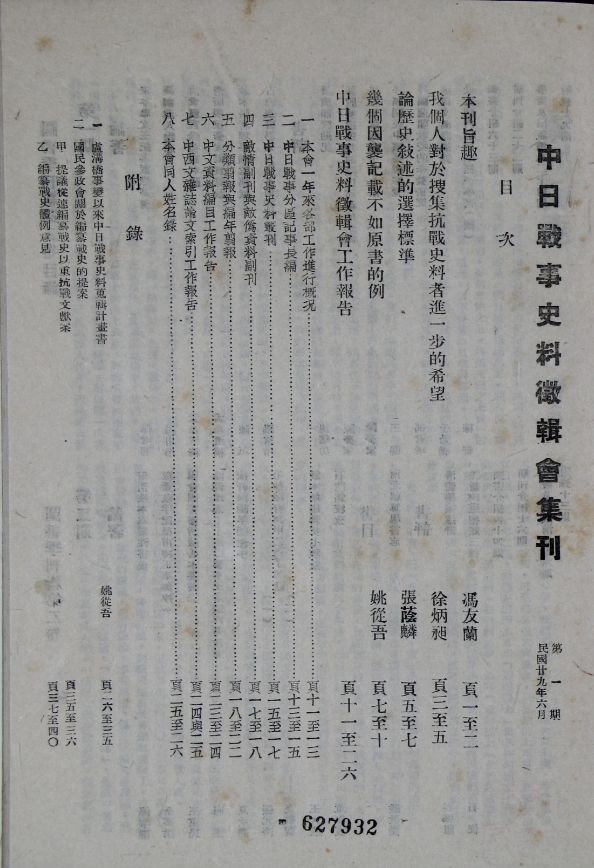 中日戰事史料徵輯會集刊
第一期
民國廿九年六月
目次
本刊旨趣 馮友蘭 頁一至二
我個人對於搜集抗戰史料者進一步的希望 徐炳昶 頁三至五
論歷史敘述的選擇標準 張蔭麟 頁五至七
幾個因襲記載不如原書的例 姚從吾 頁七至十
中日戰事史料徵輯會工作報告 頁十一至二六
一 本會一年來各部工作進行概況 頁十一至一三
二 中日戰事分區記事長編 頁十三至一五
三 中日戰事史料叢刊 頁一五至一七
四 敵情副刊與敵僞資料副刊 頁一七至一八
五 分類剪報與編年剪報 頁一八至二二
六 中文資料編目工作報告 頁二三至二四
七 中西文雜誌論文索引工作報告 頁二四與二五
八 本會同人姓名錄 頁二五至二六
附錄
一 盧溝橋事變以來中日戰事史料蒐輯計畫書 姚從吾 頁二六至三五
二 國民參政會關於編纂戰史的提案
甲 提議從速編纂戰史以重抗戰文獻案 頁三五至三六
乙 編纂戰史體例意見 頁三七至四〇
627932